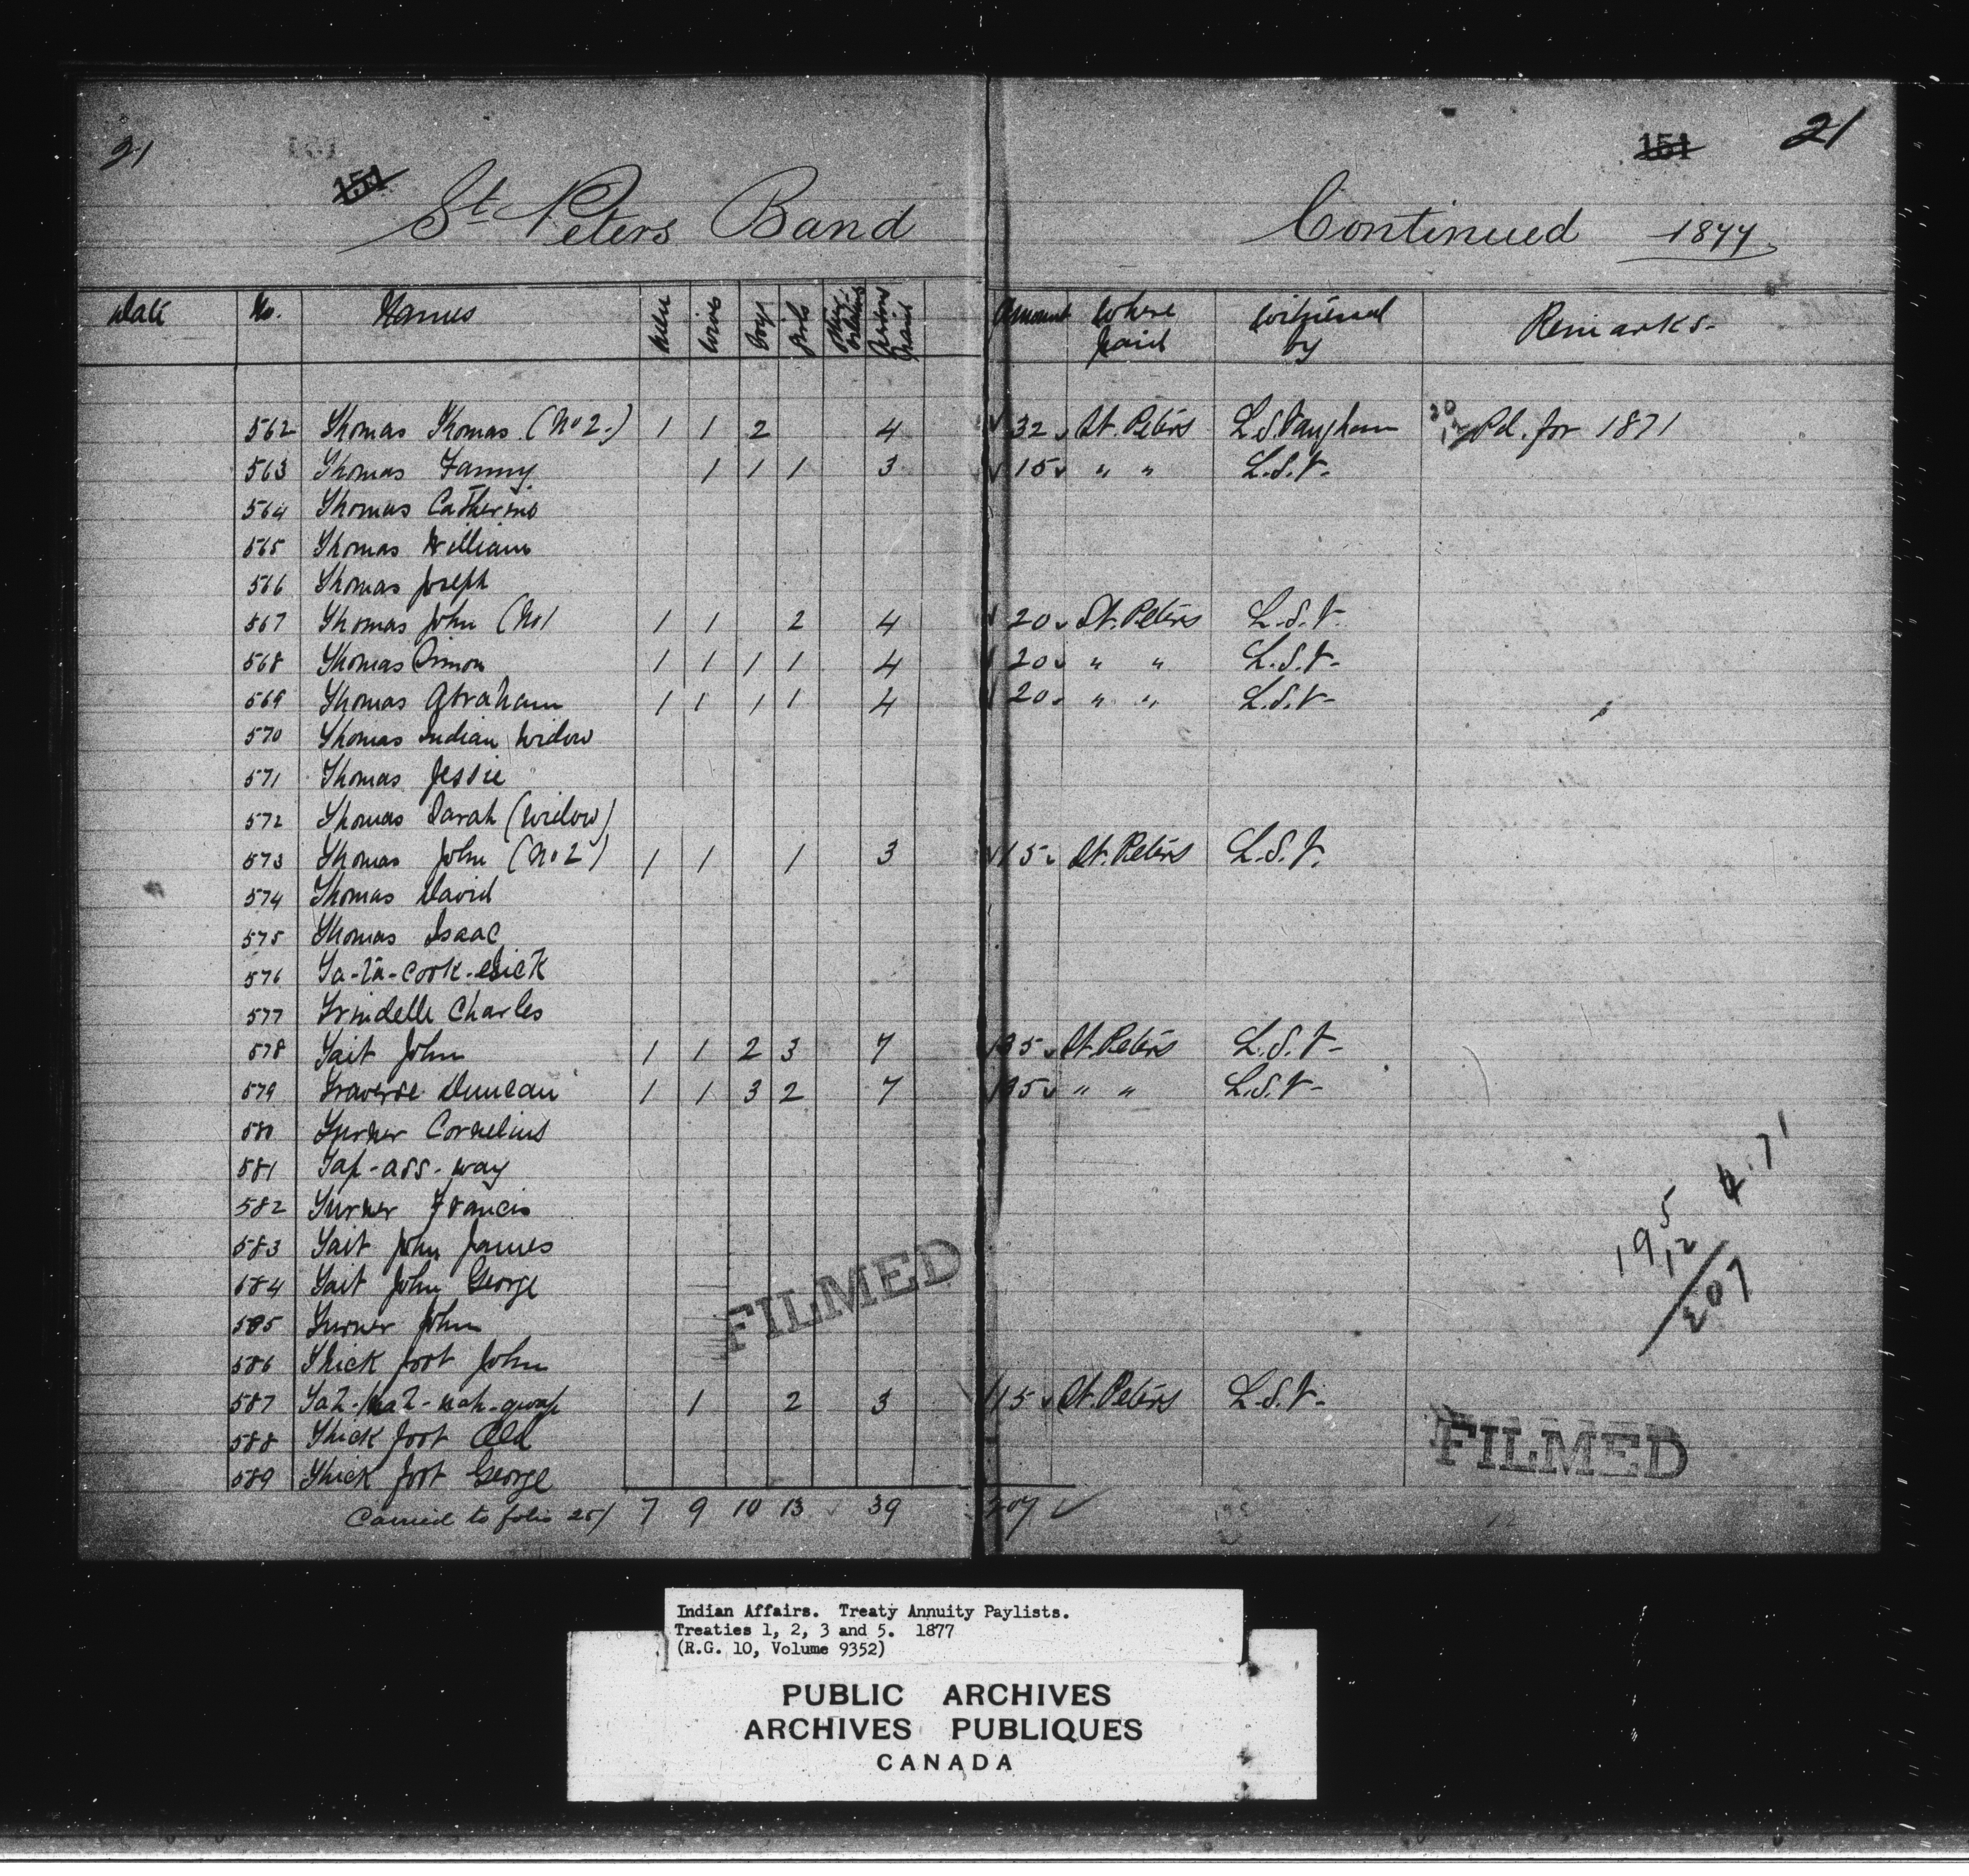 21
151
151
21
St. Peters Band Continued 1877
Date No. Names Men Wives Boys Girls Other Relatives Persons Paid Amount Where paid Witnessed by Remarks.
562 Thomas Thomas (No 2.) 1 1 2 4 32 St. Peters L. S. Vaughan 20 12 Pd. for 1871
563 Thomas Fanny 1 1 1 3 15 " " L.S.V.
564 Thomas Catherine
565 Thomas William
566 Thomas Joseph
567 Thomas John (No 1 1 1 2 4 20 St. Peters L.S.V.
568 Thomas Simon 1 1 1 1 4 20 " " L.S.V.
569 Thomas Abraham 1 1 1 1 4 20 " " L.S.V.
570 Thomas Indian Widow
571 Thomas Jessie
572 Thomas Sarah (Widow)
573 Thomas John (No 2) 1 1 1 3 15 St. Peters L.S.V.
574 Thomas David
575 Thomas Isaac
576 Ta-ta-cook-esick
577 Trindelle Charles
578 Tait John 1 1 2 3 7 35 St. Peters L.S.V.
579 Traverse Duncan 1 1 3 2 7 35 " " L.S.V.
580 Turner Cornelius
581 Tap-ass-way
582 Turner Francis
583 Tait John James
584 Tait John George
585 Turner John
586 Thick foot John
587 nah-gwap 1 2 3 15 St. Peters L.S.V.
588 Thick foot Old
589 Thick foot George
Carried to folio 25/ 7 9 10 13 39 207
195
12
207
71
FILMED
FILMED
Indian Affairs. Treaty Annuity Paylists.
Treaties 1, 2, 3 and 5. 1877
(R.G. 10, Volume 9352)
PUBLIC ARCHIVES
ARCHIVES PUBLIQUES
CANADA